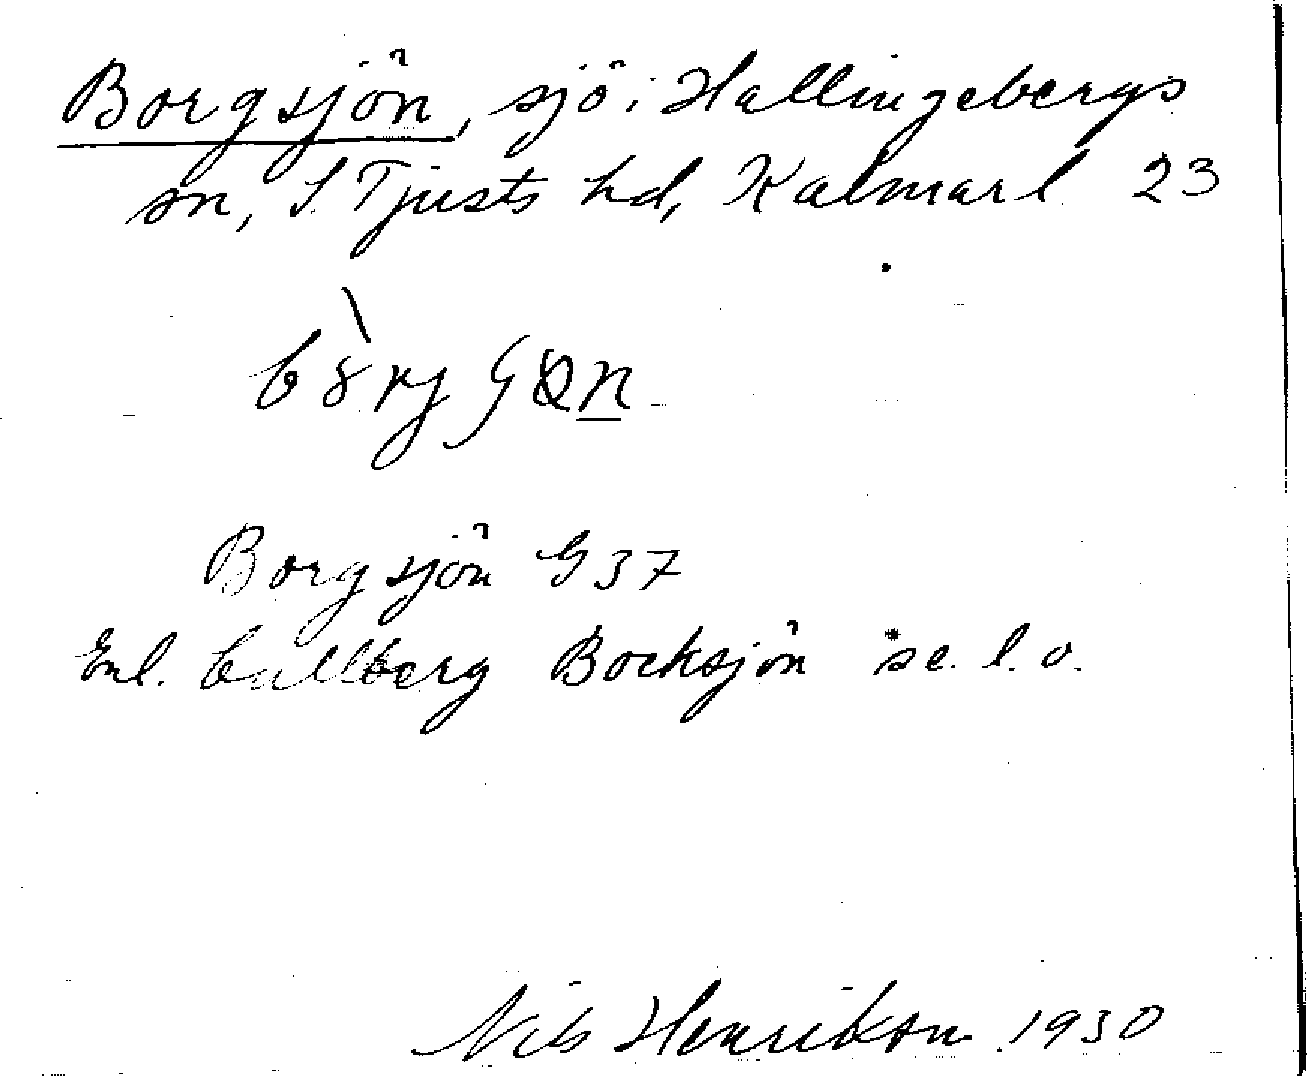 Borgsjön, sjö i Hallingebergs
sn, S. Tjusts hd, Kalmar l 23
Borgsjön G 37
Enl. Cullberg Bocksjön se. l. o.
Nils Henrikson 1930